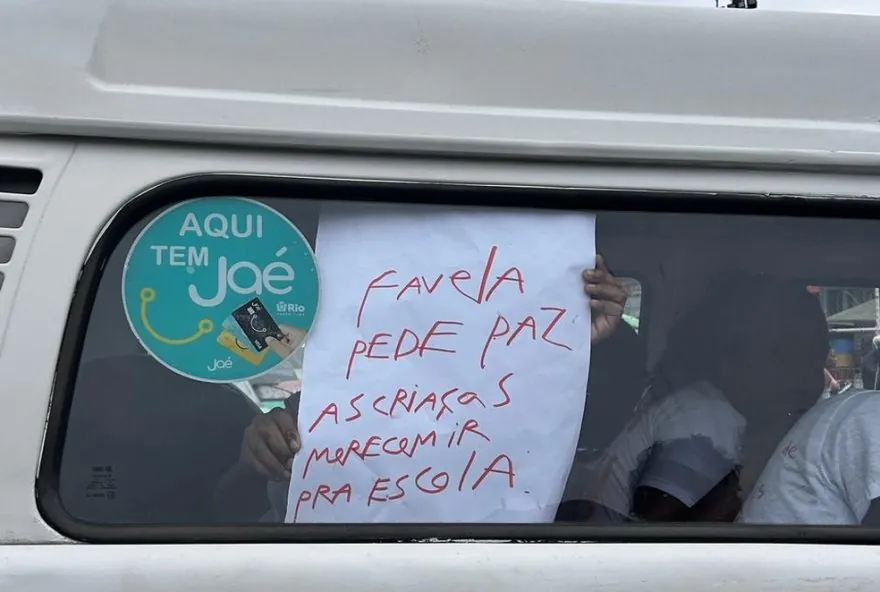 AQUI
TEM Jaé
Rio
Jaé
FAVElA
PEDE PAZ
AS CRIAÇAS
MERECEM IR
PRA ESCOlA.